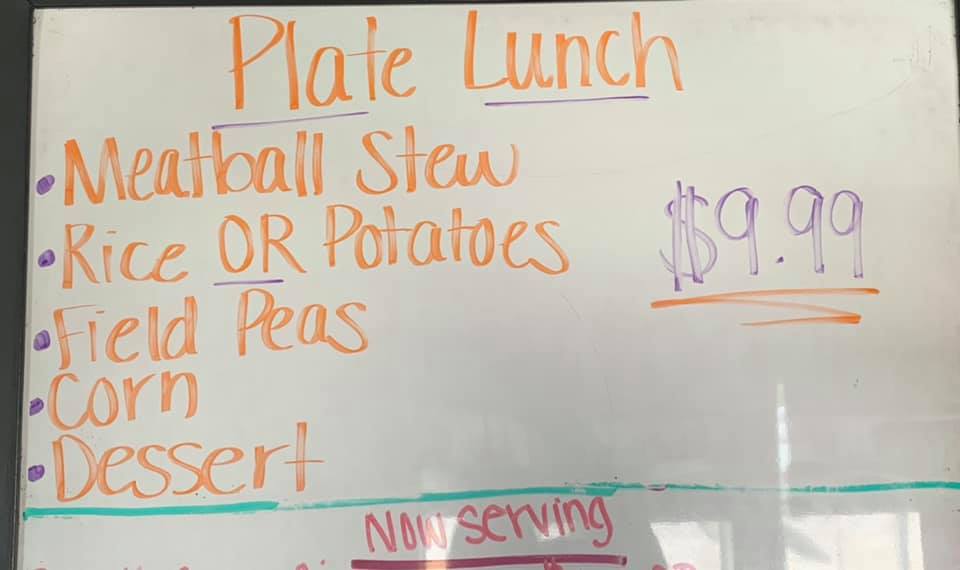 Plate Lunch
• Meatball Stew
• Rice OR Potatoes
$9.99
• Field Peas
• Corn
• Dessert
Now serving